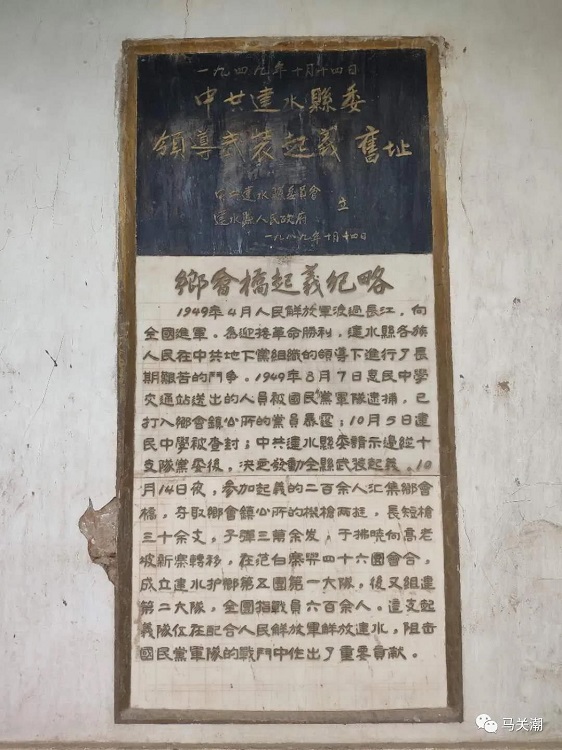 一九四九年十月十四日
中共建水縣委
領導武装起義舊址
中共建水縣委員會
建水縣人民政府
立
一九八九年十月十四日
鄉會橋起義纪略
1949年4月人民解放軍渡過長江，向
全國進軍。為迎接革命勝利，建水縣各族
人民在中共地下黨組織的領導下進行了長
期艱苦的鬥争。1949年8月7日惠民中學
交通站送出的人員被國民黨軍隊逮捕，已
打入鄉會鎮公所的黨員暴露；10月5日建
民中學被查封；中共建水縣委請示邊縱十
支隊黨委後，决定發動全縣武装起義。10
月14日夜，参加起義的二百余人汇集鄉會
橋，夺取鄉會鎮公所的機槍两挺，長短槍
三十余支，子彈三萬余发，于拂曉向高老
坡新寨轉移，在范白寨與四十六團會合，
成立建水护鄉第五團第一大隊，後又組建
第二大隊，全團指戰員六百余人。這支起
義隊伍在配合人民解放軍解放建水，阻击
國民黨軍隊的戰鬥中作出了重要貢献。
马关潮